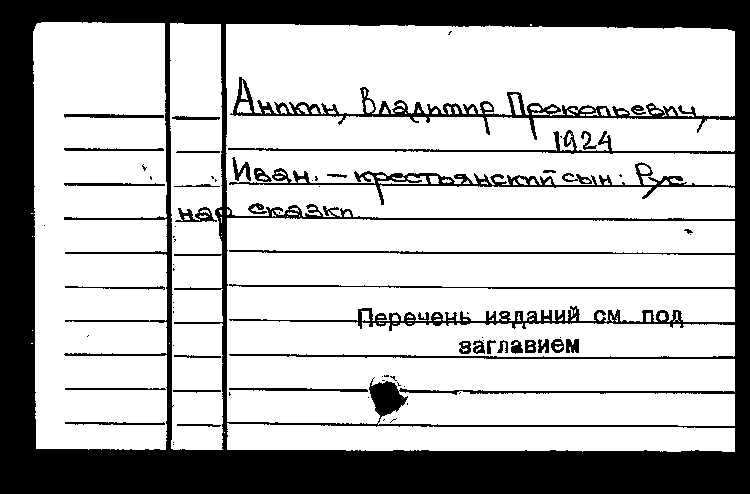 Аникин, Владимир Прокопьевич,
1924
Иван. – крестьянский сын: Рус.
нар сказки
Перечень изданий см. под
заглавием